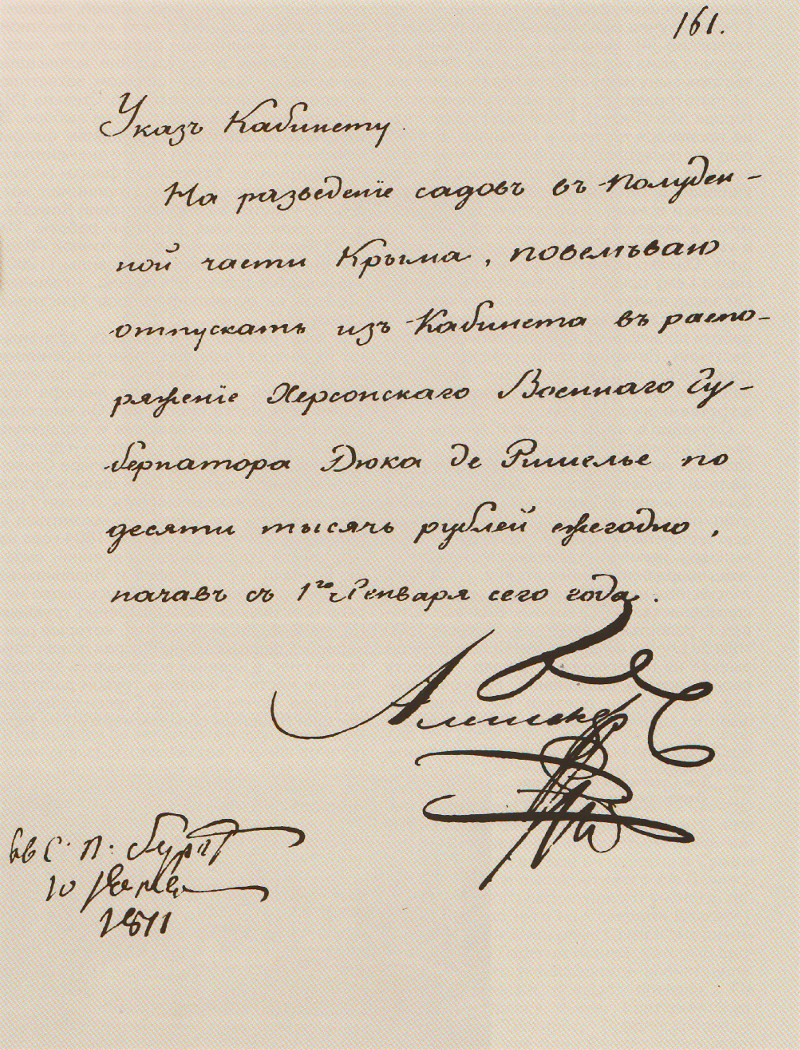 161.
Указъ Кабинету.
На разведенїе садовъ въ полуден-
ной части Крыма, повелѣваю
отпускать изъ Кабинета въ распо-
ряженїе Херсонскаго Военнаго Гу-
бернатора Дюка де Ришелье по
десяти тысячь рублей ежегодно,
начавъ съ 1го Генваря сего года.
Александръ
въ С. П. бургѣ
10
1811